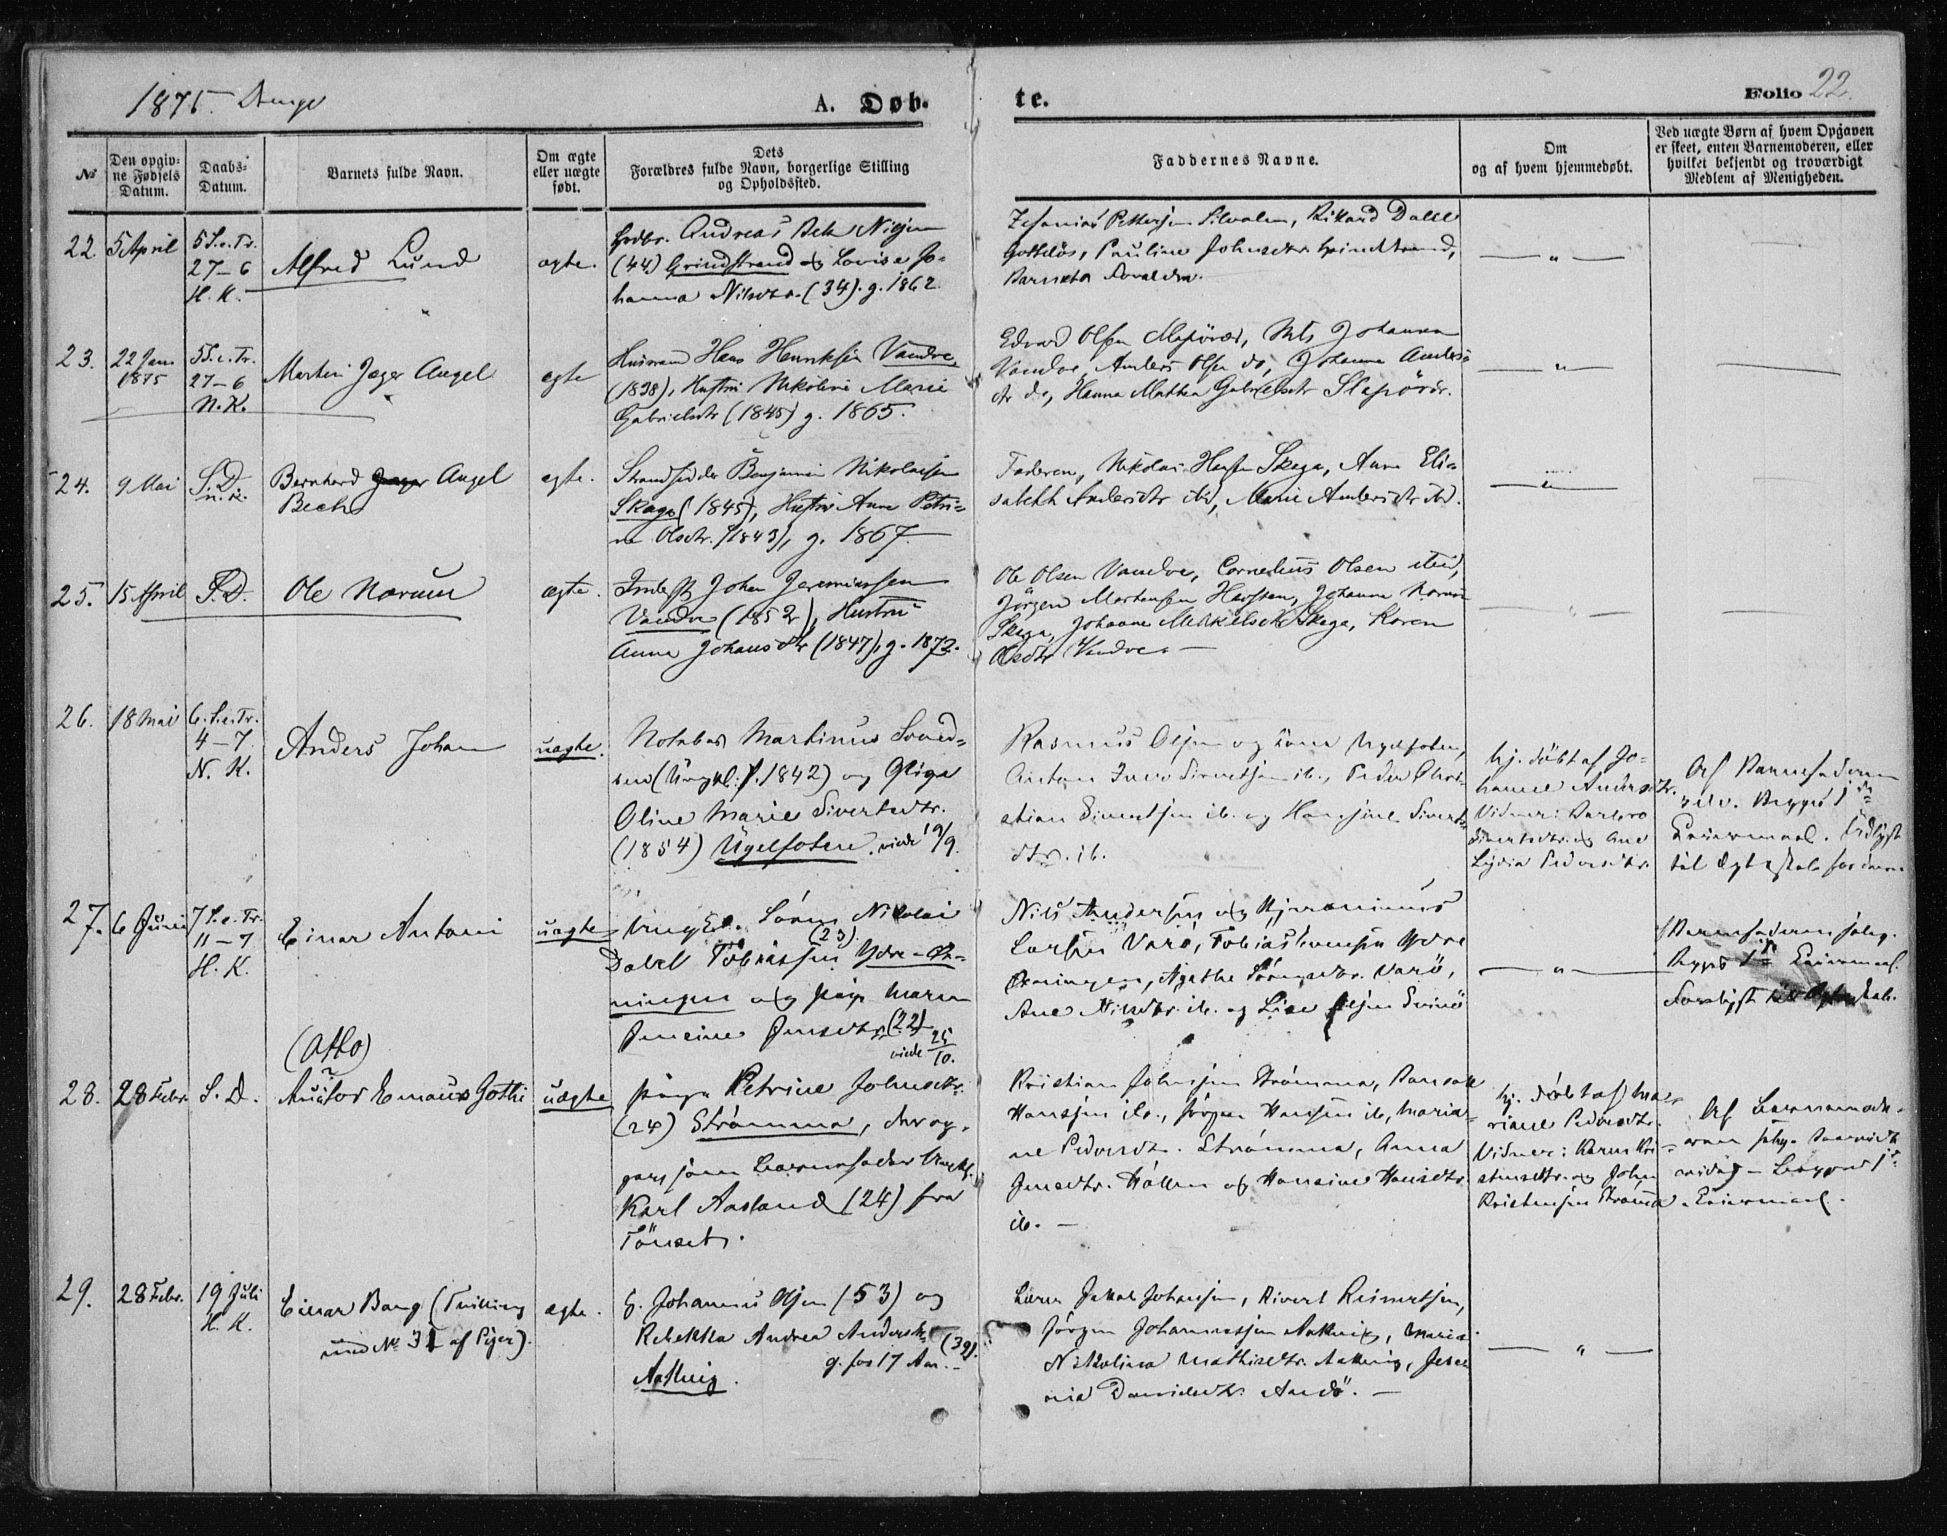 1875. Drenge
A. Døb-
te.
Folio 22.
No
Den opgiv-
ne Fødsels
Datum.
Daabs-
Datum.
Barnets fulde Navn.
Om ægte
eller uægte
født.
Dets
Forældres fulde Navn, borgerlige Stilling
og Opholdssted.
Faddernes Navne.
Om
og af hvem hjemmedøbt.
Ved uægte Børn af hvem Opgaven
er skeet, enten Barnemoderen, eller
hvilket bekjendt og troværdigt
Medlem af Menigheden.
22.
5 April
5 S. e. Tr.
27-6
H. K.
Alfred Lund
ægte.
Grdbr. Andreas Bek
(44) Grindstrand og Lovise Jo-
hanna Nilsdtr. (34). g. 1862
Pettersen, Rikard Dahl
Pauline Johnsdtr. Grindstrand,
Barnets Forældre.
— " —
23.
22 Jan
1875
5 S. e. Tr.
27-6
N. K.
Martin Jæger Angel
ægte
Husmand Hans Henriksen Vandve
(1838), Hustru Nikoline Marie
Gabrielsdtr (1845) g. 1865.
Edvard Olsen Johanna
Vandve, Anders Olsen do, Johanna Anders-
dtr do, Hanna Mathea Gabrielsdtr
— " —
24.
9 Mai
S. D.
N. K.
Bernhard Jæger Angel
Bech
ægte.
Strandsidder Benjamin Nikolaisen
Skaga (1845), Hustru Anne Petri-
ne Olsdtr. (1843), g. 1867.
Faderen, Nikolai Hansen Skega, Anne Eli-
sabeth Andersdtr ibd, Marie Andersdtr ibd.
— " —
25.
15 April
S. D.
Ole Norum
ægte.
Inderst Johan Jeremiassen
Vandve (1852), Hustru
Anna Johansdtr (1847), g. 1872.
Ole Olsen Vandve, Cornelius Olsen ibid,
Jørgen Mortensen Johanna
Skega, Johanne Mikkelsdtr Skega, Karen
Olsdtr Vandve. —
— " —
26.
18 Mai
6. S. e. Tr.
4-7
N. K.
Anders Johan
uægte.
Notabas Martinus Svend-
sen (Ungkl. f. 1842) og Pige
Oline Marie Sivertsdtr.
(1854) Ugelfoten. viede 19/9.
Rasmus Olsen og Kone Ugelfoten,
Anton Sivertsen ib., Peder Chri-
stian Sivertsen ib. og Hansine Siverts-
dtr. ib.
hj. døbt af Jo-
hanne Andersdtr.
Vidner: Barbro
Sivertsdtr. og Ane
Lydia Pedersdtr.
Af Barnefaderen
selv. Begges 1ste
Leiermaal. Udlyst
til Ægteskab
27.
6 Juni
7 S. e. Tr.
11-7
H. K.
Einar Antoni
uægte
Ungkl. Søren Nikolai
Dahl Tobiassen (23) Ydre-Øk-
ningen og Pige Maren
Jensine Jensdtr. (22)
viede 25/10.
Nils Andersen og Hjeronimus
Larsen Varø, Tobias Ydre
Økningen, Agathe Sørensdtr. Varø,
Ane Nilsdtr. ib. og Lise
— " —
Barnefaderen
Begges 1ste Leiermaal.
Forlyst til Ægteskab.
28.
28 Febr.
S. D.
(Otto)
Austor Emaus Gothi
uægte
Pige Petrine Johnsdtr.
(24) Strømma, der op-
gav som Barnefader Ungkl.
Karl Aasland (24) fra
Tønset.
Kristian Johnsen Strømma,
Hansen ib., Jørgen Hansen ib, Maria-
ne Pedersdtr. Strømma, Anna
Jensdtr. Hallen og Hansine Hansdtr
ib. —
hj. døbt af Ma-
riane Pedersdtr.
Vidner: Karen Kri-
stensdtr. og John
Kristensen Strømma
Af Barnemode-
ren
Begges 1ste
Leiermaal.
29.
28 Febr.
19 Juli
H. K.
Einar Bang (Tvilling
med No 31 af Piger).
ægte.
G. Johannes Olsen (53) og
Rebekka Andrea Andersdtr (39).
g. for 17 Aar. —
Aakvig.
Lærer Jakob Johansen, Sivert Reinertsen,
Jørgen Johannessen Aakvig, Maria
Nikolina Mathisdtr. Aakvig,
Danielsdtr. Andø. —
— " —